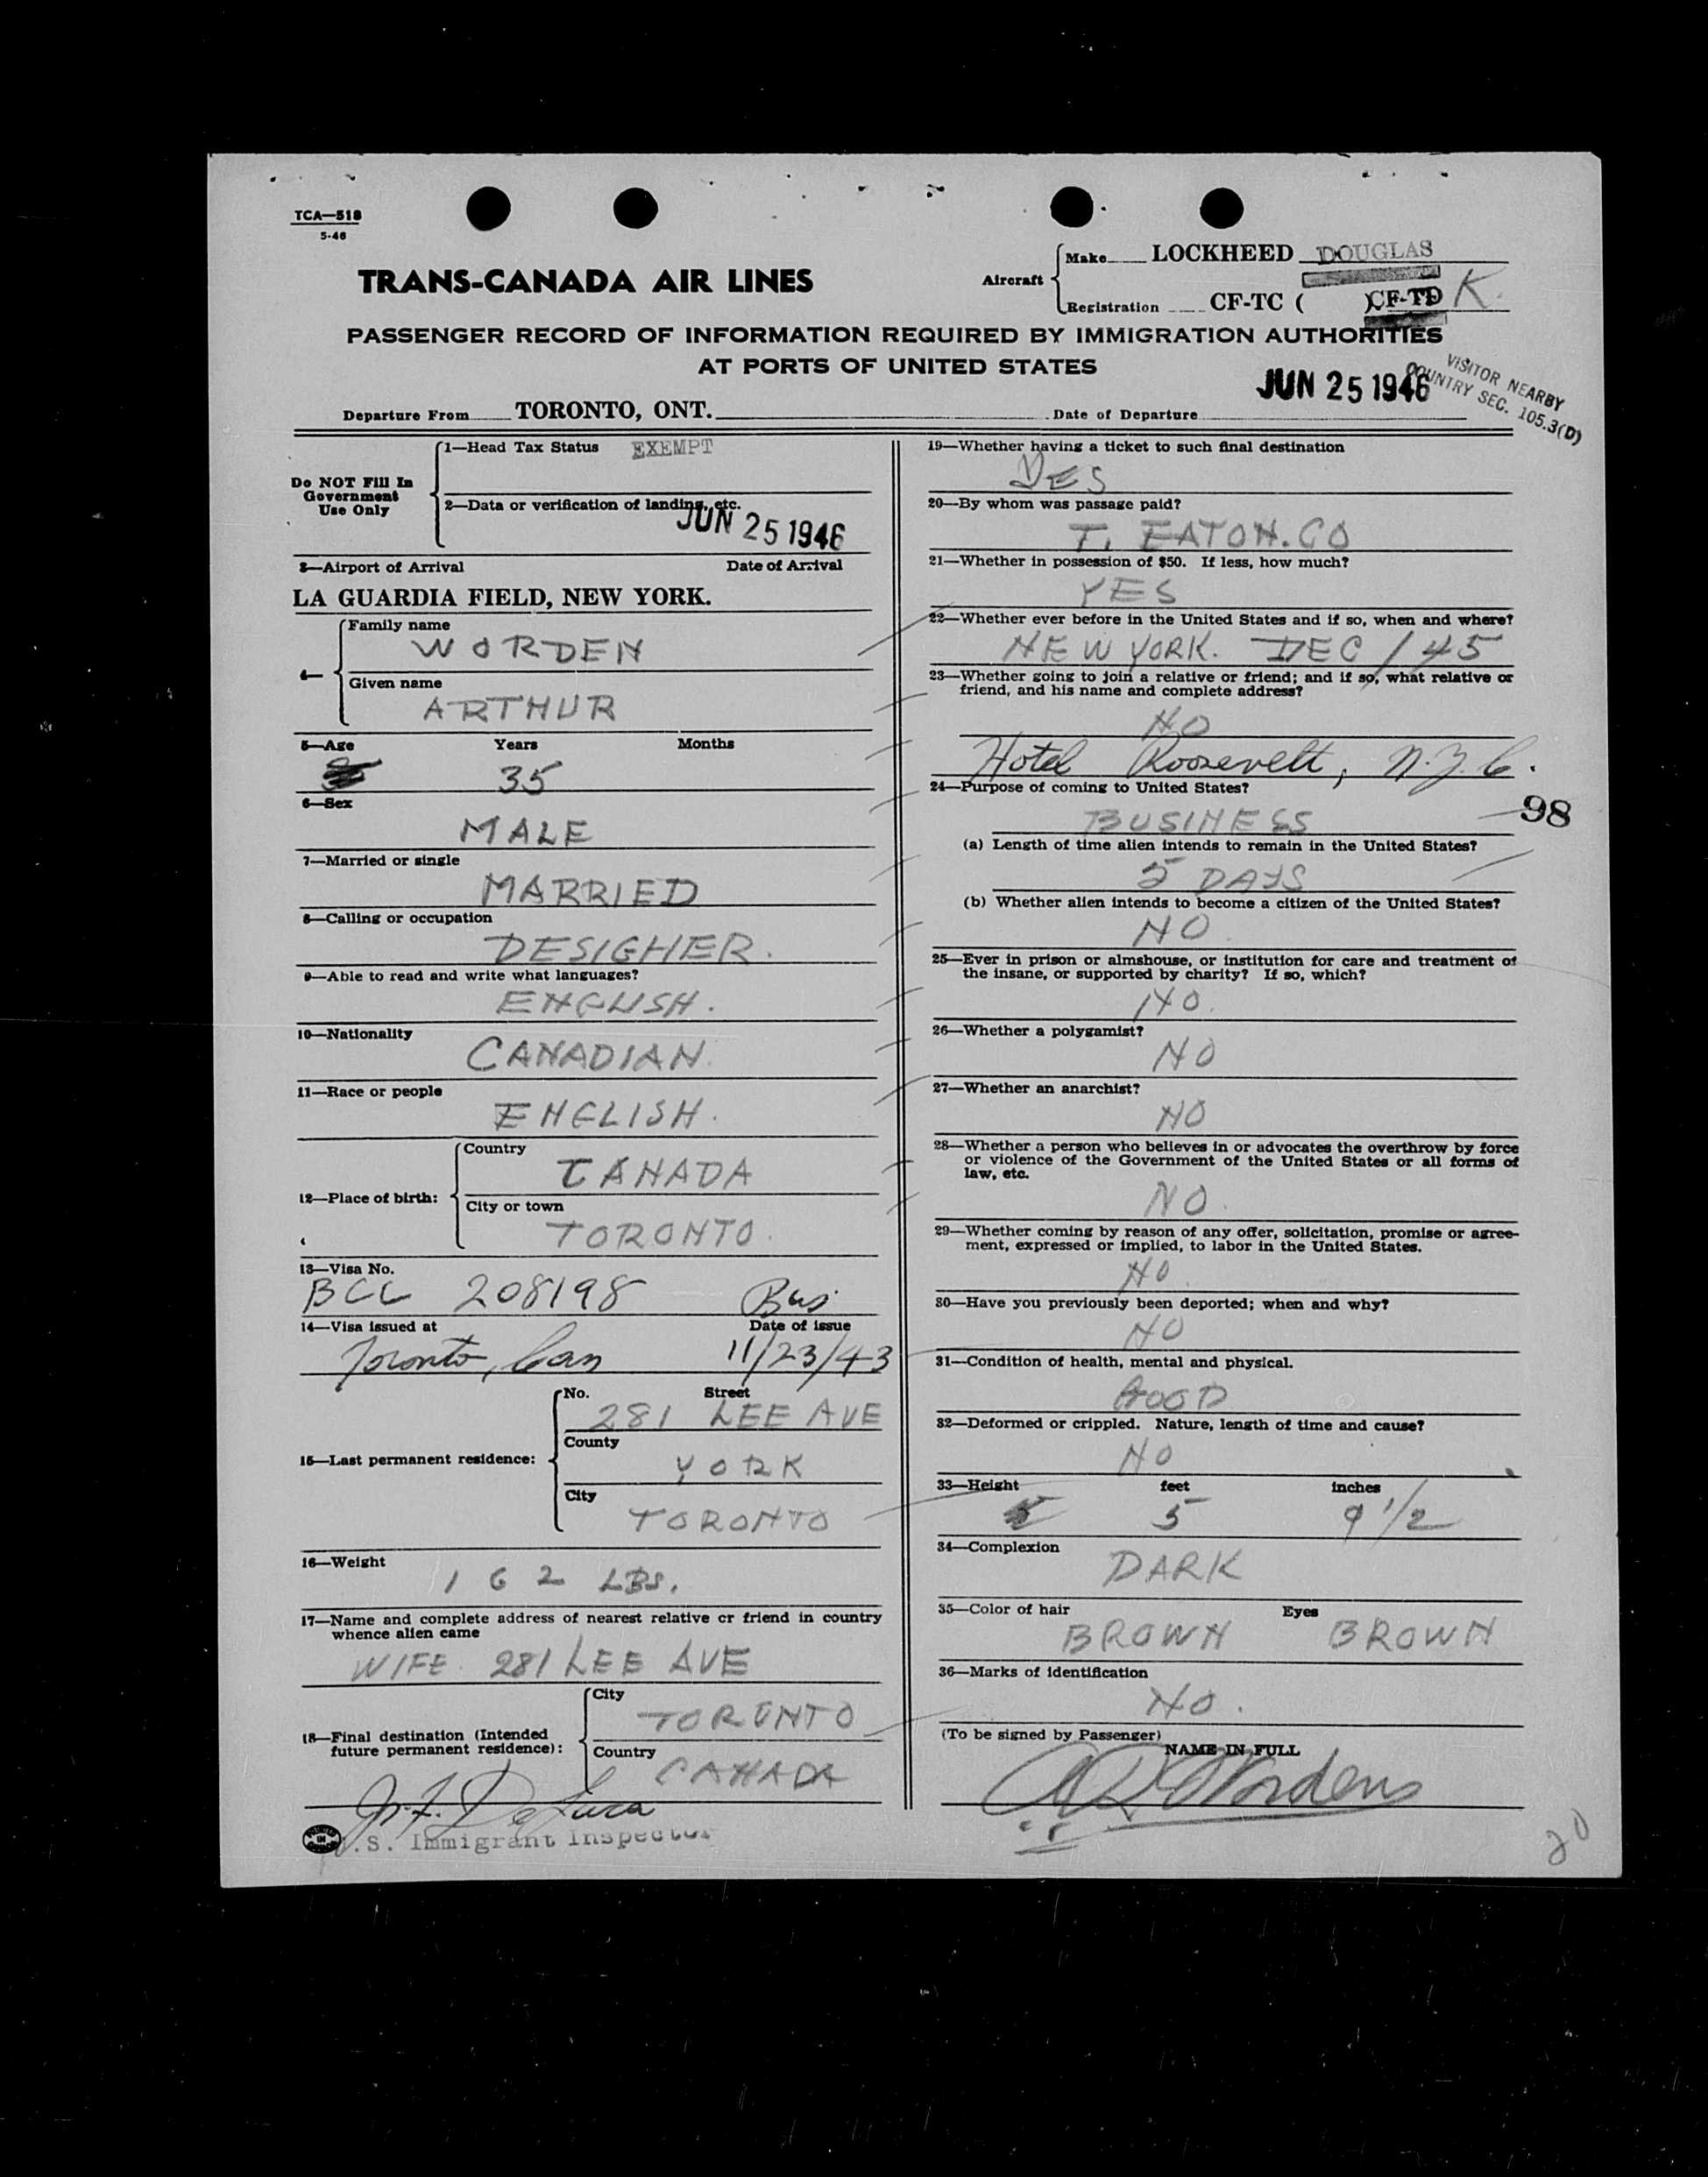 TCA—518
5-46
TRANS-CANADA AIR LINES
Aircraft
Make LOCKHEED DOUGLAS
Registration CF-TC ( ) CF-TD K.
PASSENGER RECORD OF INFORMATION REQUIRED BY IMMIGRATION AUTHORITIES
AT PORTS OF UNITED STATES
JUN 25 1946
VISITOR NEARBY
COUNTRY SEC. 105.3(D)
Departure From TORONTO, ONT. Date of Departure
Do NOT Fill In
Government
Use Only
1—Head Tax Status EXEMPT
2—Data or verification of landing, etc.
JUN 25 1946
3—Airport of Arrival Date of Arrival
LA GUARDIA FIELD, NEW YORK.
4—
Family name
WORDEN
Given name
ARTHUR
5—Age Years Months
35
6—Sex
MALE
7—Married or single
MARRIED
8—Calling or occupation
DESIGNER.
9—Able to read and write what languages?
ENGLISH.
10—Nationality
CANADIAN.
11—Race or people
ENGLISH.
12—Place of birth:
Country
CANADA
City or town
TORONTO.
13—Visa No.
BCC 208198 Bus
14—Visa issued at Date of issue
Toronto, Can 11/23/43
15—Last permanent residence:
No. Street
281 LEE AVE
County
YORK
City
TORONTO
16—Weight
162 LBS.
17—Name and complete address of nearest relative or friend in country
whence alien came
WIFE 281 LEE AVE
18—Final destination (Intended
future permanent residence):
City
TORONTO
Country
CANADA
DeLuca
U.S. Immigrant Inspector
19—Whether having a ticket to such final destination
YES
20—By whom was passage paid?
T. EATON. CO
21—Whether in possession of $50. If less, how much?
YES
22—Whether ever before in the United States and if so, when and where?
NEW YORK. DEC / 45
23—Whether going to join a relative or friend; and if so, what relative or
friend, and his name and complete address?
NO
Hotel Roosevelt, N.Y.C.
24—Purpose of coming to United States?
BUSINESS
98
(a) Length of time alien intends to remain in the United States?
5 DAYS
(b) Whether alien intends to become a citizen of the United States?
NO
25—Ever in prison or almshouse, or institution for care and treatment of
the insane, or supported by charity? If so, which?
NO.
26—Whether a polygamist?
NO
27—Whether an anarchist?
NO
28—Whether a person who believes in or advocates the overthrow by force
or violence of the Government of the United States or all forms of
law, etc.
NO.
29—Whether coming by reason of any offer, solicitation, promise or agree-
ment, expressed or implied, to labor in the United States.
NO.
30—Have you previously been deported; when and why?
NO
31—Condition of health, mental and physical.
GOOD
32—Deformed or crippled. Nature, length of time and cause?
NO
33—Height feet inches
5 9 1/2
34—Complexion
DARK
35—Color of hair Eyes
BROWN BROWN
36—Marks of identification
NO.
(To be signed by Passenger)
NAME IN FULL
Worden
20